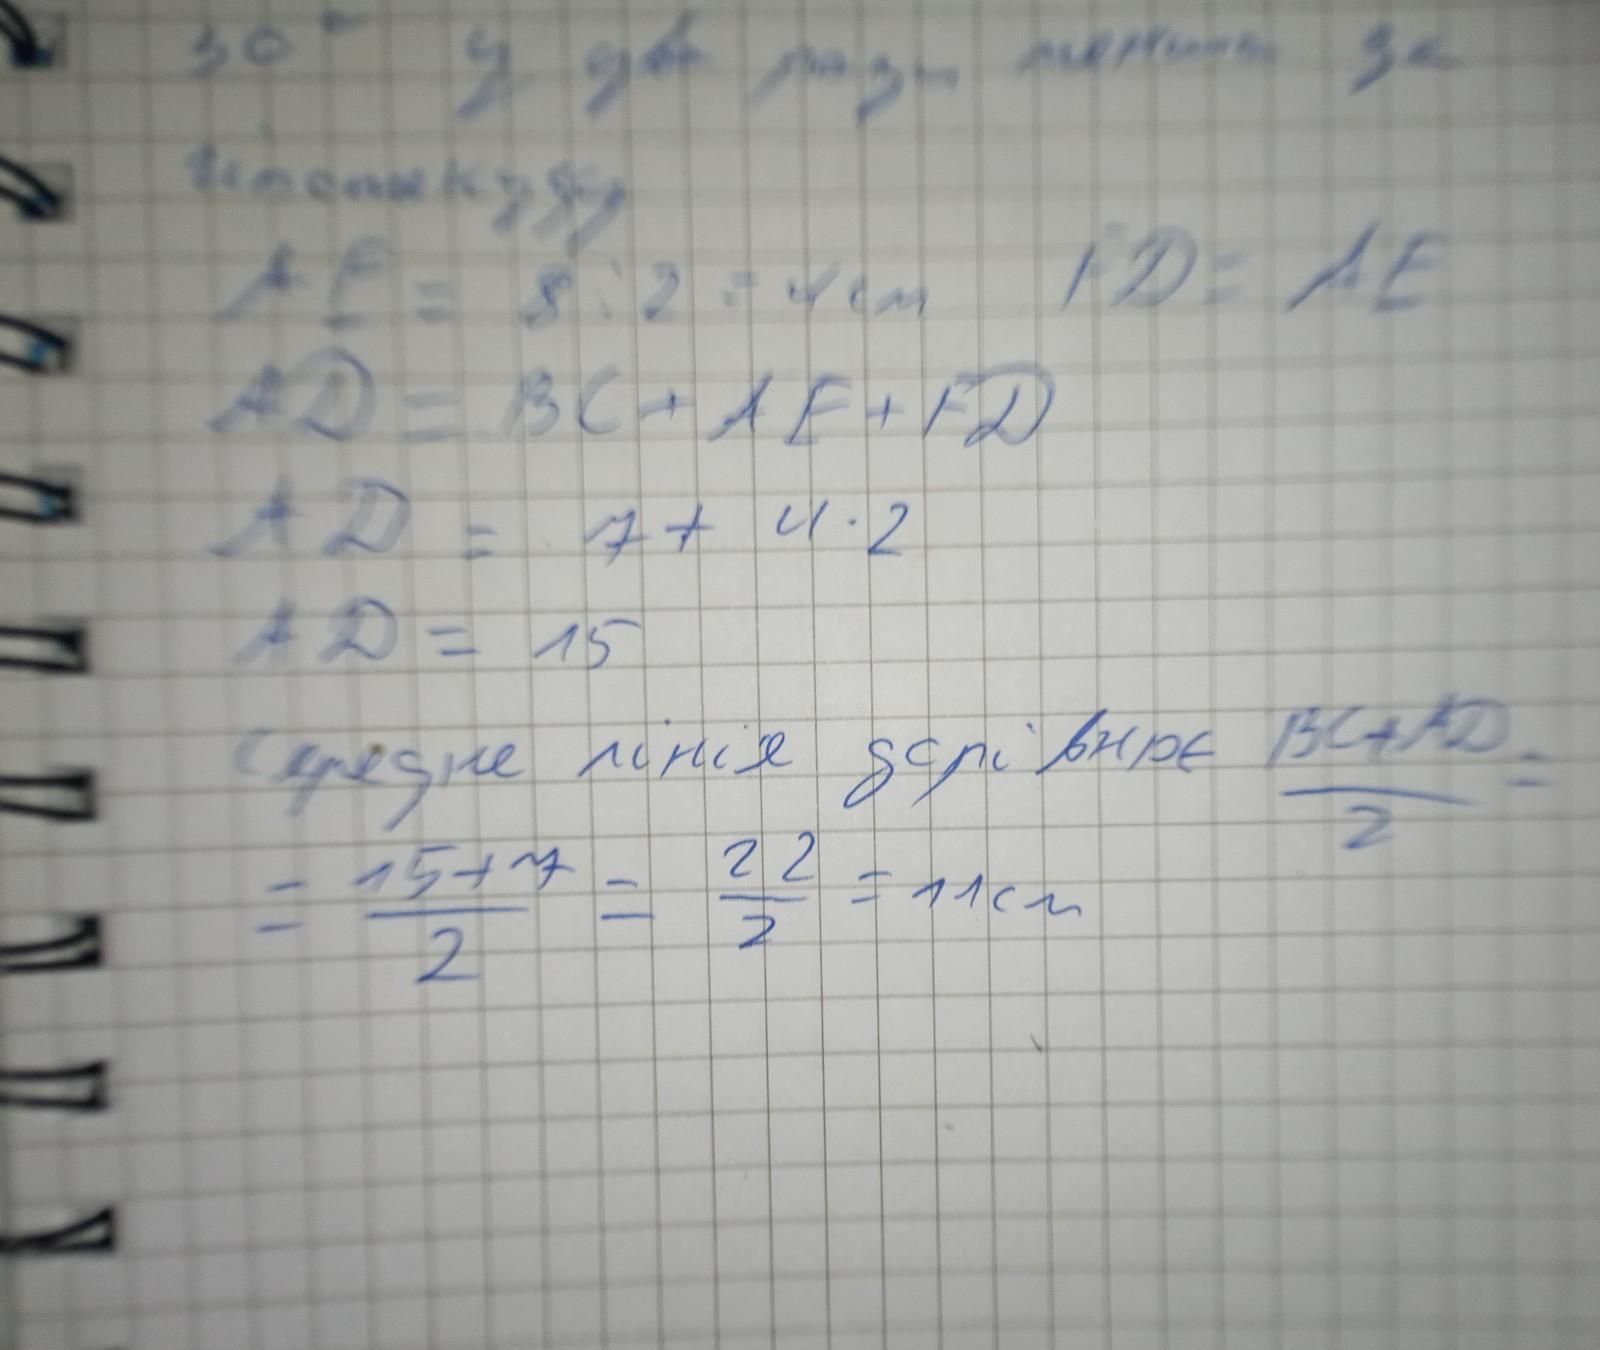 30° у два рази менший за
гіпотенузу
AE = 8 : 2 = 4 см FD = AE
AD = BC + AE + FD
AD = 7 + 4 · 2
AD = 15
Середня лінія дорівнює BC+AD/2 =
= 15+7/2 = 22/2 = 11 см